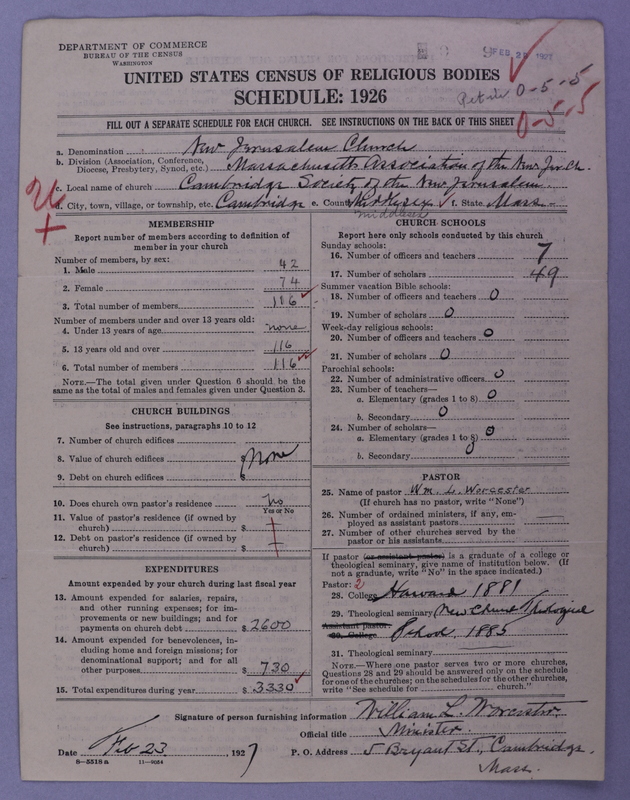 DEPARTMENT OF COMMERCE
BUREAU OF THE CENSUS
WASHINGTON
FEB 25 1927
UNITED STATES CENSUS OF RELIGIOUS BODIES
SCHEDULE: 1926
0-5-5
FILL OUT A SEPARATE SCHEDULE FOR EACH CHURCH. SEE INSTRUCTIONS ON THE BACK OF THIS SHEET
0-5-5
a. Denomination New Jerusalem Church
b. Division (Association, Conference, Diocese, Presbytery, Synod, etc.) Massachusetts Association of the New Jer. Ch.
c. Local name of church Cambridge Society of the New Jerusalem.
d. City, town, village, or township, etc. Cambridge e. County Middlesex f. State Mass.
Middlesex
MEMBERSHIP
Report number of members according to definition of member in your church
Number of members, by sex:
1. Male 42
2. Female 74
3. Total number of members 116
Number of members under and over 13 years old:
4. Under 13 years of age none
5. 13 years old and over 116
6. Total number of members 116
NOTE.—The total given under Question 6 should be the same as the total of males and females given under Question 3.
CHURCH BUILDINGS
See instructions, paragraphs 10 to 12
7. Number of church edifices
8. Value of church edifices $ None
9. Debt on church edifices $
10. Does church own pastor's residence No
Yes or No
11. Value of pastor's residence (if owned by church) $
12. Debt on pastor's residence (if owned by church) $
EXPENDITURES
Amount expended by your church during last fiscal year
13. Amount expended for salaries, repairs, and other running expenses; for improvements or new buildings; and for payments on church debt $ 2600
14. Amount expended for benevolences, including home and foreign missions; for denominational support; and for all other purposes $ 730
15. Total expenditures during year $ 3330
CHURCH SCHOOLS
Report here only schools conducted by this church
Sunday schools:
16. Number of officers and teachers 7
17. Number of scholars 49
Summer vacation Bible schools:
18. Number of officers and teachers 0
19. Number of scholars 0
Week-day religious schools:
20. Number of officers and teachers 0
21. Number of scholars 0
Parochial schools:
22. Number of administrative officers 0
23. Number of teachers—
a. Elementary (grades 1 to 8) 0
b. Secondary 0
24. Number of scholars—
a. Elementary (grades 1 to 8) 0
b. Secondary 0
PASTOR
25. Name of pastor Wm. L. Worcester
(If church has no pastor, write "None")
26. Number of ordained ministers, if any, employed as assistant pastors
27. Number of other churches served by the pastor or his assistants
If pastor (or assistant pastor) is a graduate of a college or theological seminary, give name of institution below. (If not a graduate, write "No" in the space indicated.)
Pastor: 2
28. College Harvard 1881
29. Theological seminary New Church Theological
Assistant pastor:
30. College School, 1885
31. Theological seminary
NOTE.—Where one pastor serves two or more churches, Questions 28 and 29 should be answered only on the schedule for one of the churches; on the schedules for the other churches, write "See schedule for church."
Signature of person furnishing information William L. Worcester.
Official title Minister.
Date Feb 23 1927 P. O. Address 5 Bryant St., Cambridge.
8—5518 a 11—9054
Mass.